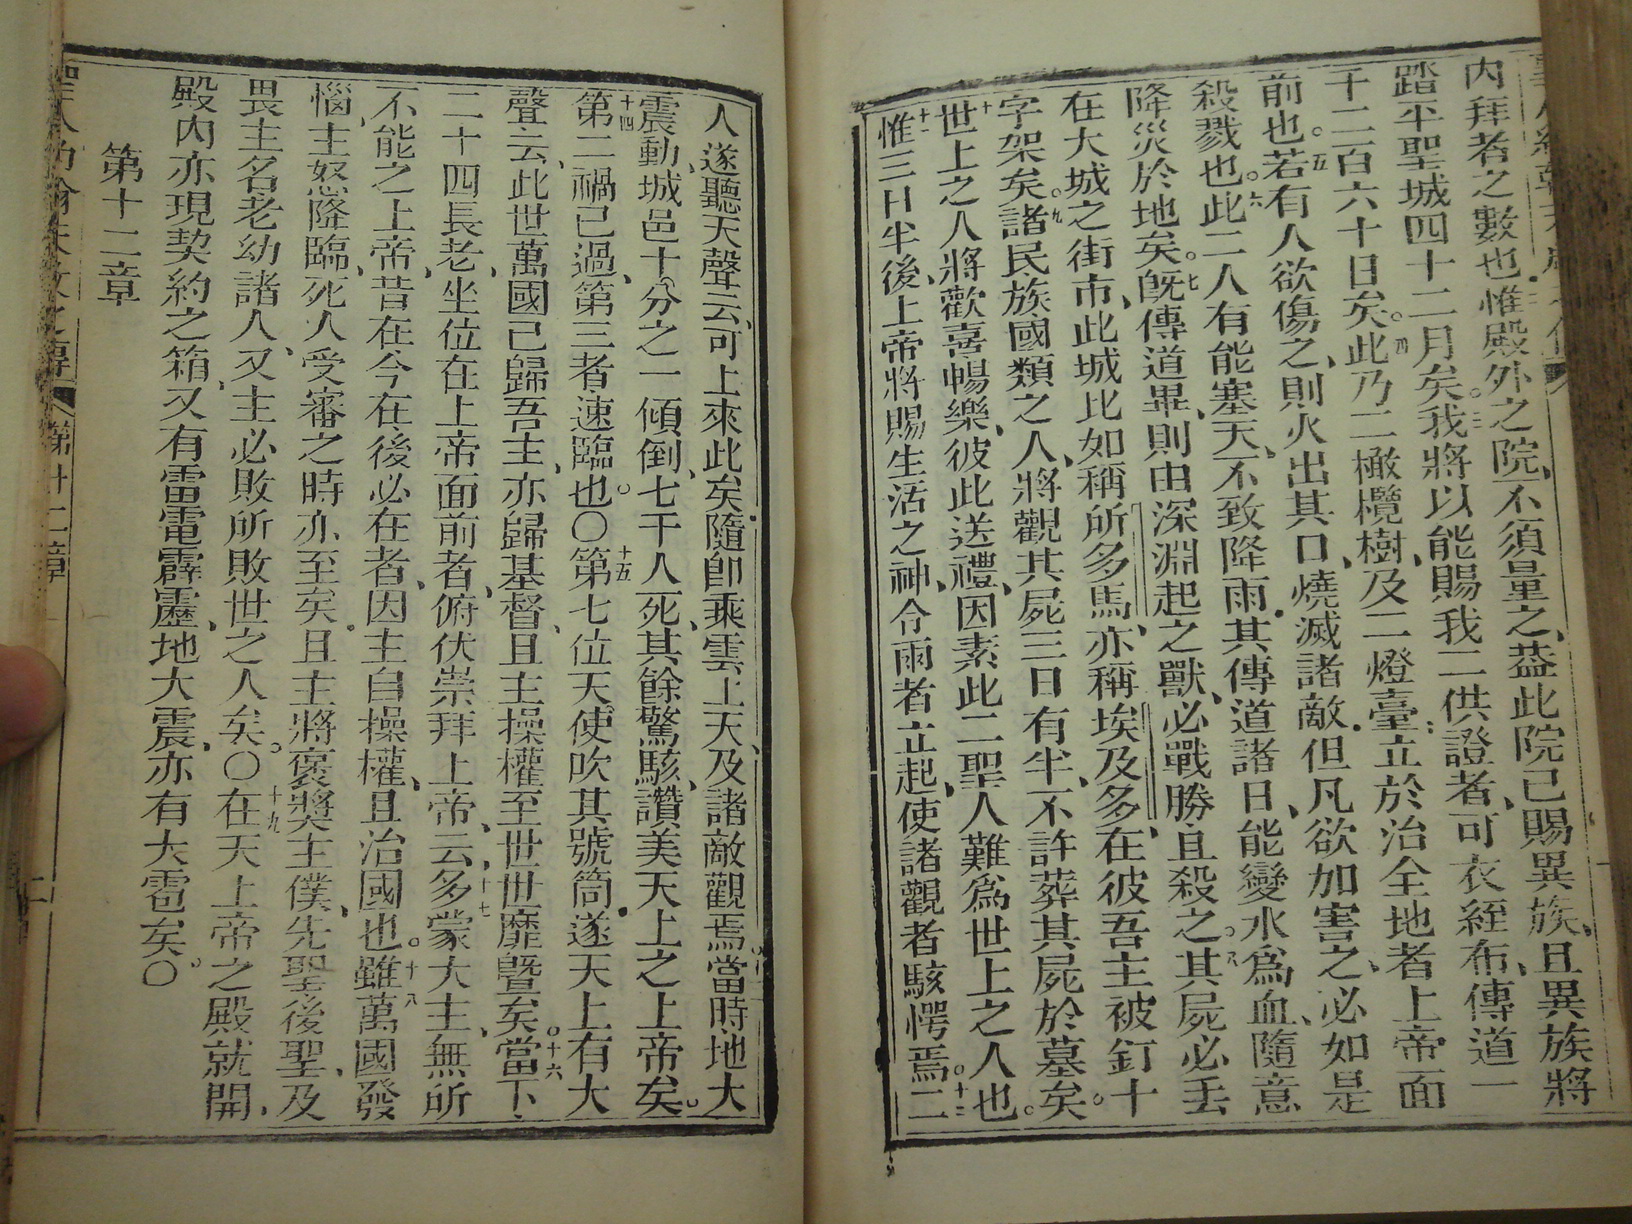 內拜者之數也惟殿外之院、不須量之、葢此院已賜異族、且異族將
踏平聖城四十二月矣。三我將以能賜我二供證者、可衣絰布、傳道一
千二百六十日矣。四此乃二橄欖樹、及二燈臺立於治全地者上帝面
前也。五若有人欲傷之、則火出其口、燒滅諸敵.但凡欲加害之、必如是
殺戮也。六此二人有能塞天、不致降雨.其傳道諸日、能變水爲血、隨意
降災於地矣。七旣傳道畢、則由深淵起之獸、必戰勝且殺之。八其屍必丟
在大城之街市、此城比如稱所多馬、亦稱埃及多、在彼吾主被釘十
字架矣。九諸民族國類之人、將觀其屍三日有半、不許葬其屍於墓矣。
十世上之人將歡喜暢樂、彼此送禮、因素此二聖人難爲世上之人也。
十一惟三日半後、上帝將賜生活之神、令兩者立起、使諸觀者駭愕焉。十二二
人遂聽天聲云、可上來此矣.隨卽乘雲上天、及諸敵觀焉。十三當時地大
震動、城邑十分之一傾倒、七千人死、其餘驚駭、讚美天上之上帝矣。
十四第二禍已過、第三者速臨也。〇十五第七位天使吹其號筒.遂天上有大
聲云、此世萬國已歸吾主、亦歸基督、且主操權至世世靡曁矣。十六當下、
二十四長老、坐位在上帝面前者、俯伏崇拜上帝、云、十七多蒙大主、無所
不能之上帝、昔在今在後必在者、因主自操權、且治國也。十八雖萬國發
惱、主怒降臨、死人受審之時亦至矣.且主將褒獎主僕、先聖後聖、及
畏主名老幼諸人、又主必敗所敗世之人矣。〇十九在天上帝之殿就開、
殿內亦現契約之箱、又有雷電霹靂、地大震、亦有大雹矣。〇
第十二章
第十二章
二